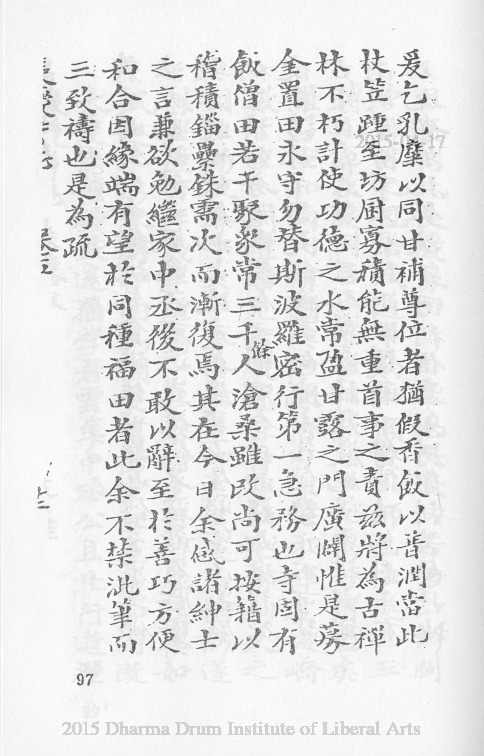 爰乞乳糜以同甘補尊位者猶假香飯以普潤當此
杖笠踵至坊厨寡積能無重首事之責茲將為古禪
林不朽計使功德之水常盈甘露之門廣闢惟是募
金置田永守勿替斯波羅密行第一急務也寺固有
飯僧田若干聚衆常三千餘人滄桑雖改尚可按籍以
稽積錙纍銖需次而漸復焉其在今日余感諸紳士
之言兼欲勉繼家中丞後不敢以辭至於善巧方便
和合因緣端有望於同種福田者此余不禁泚筆而
三致禱也是為疏
97
2015-04-17
2015 Dharma Drum Institute of Liberal Arts